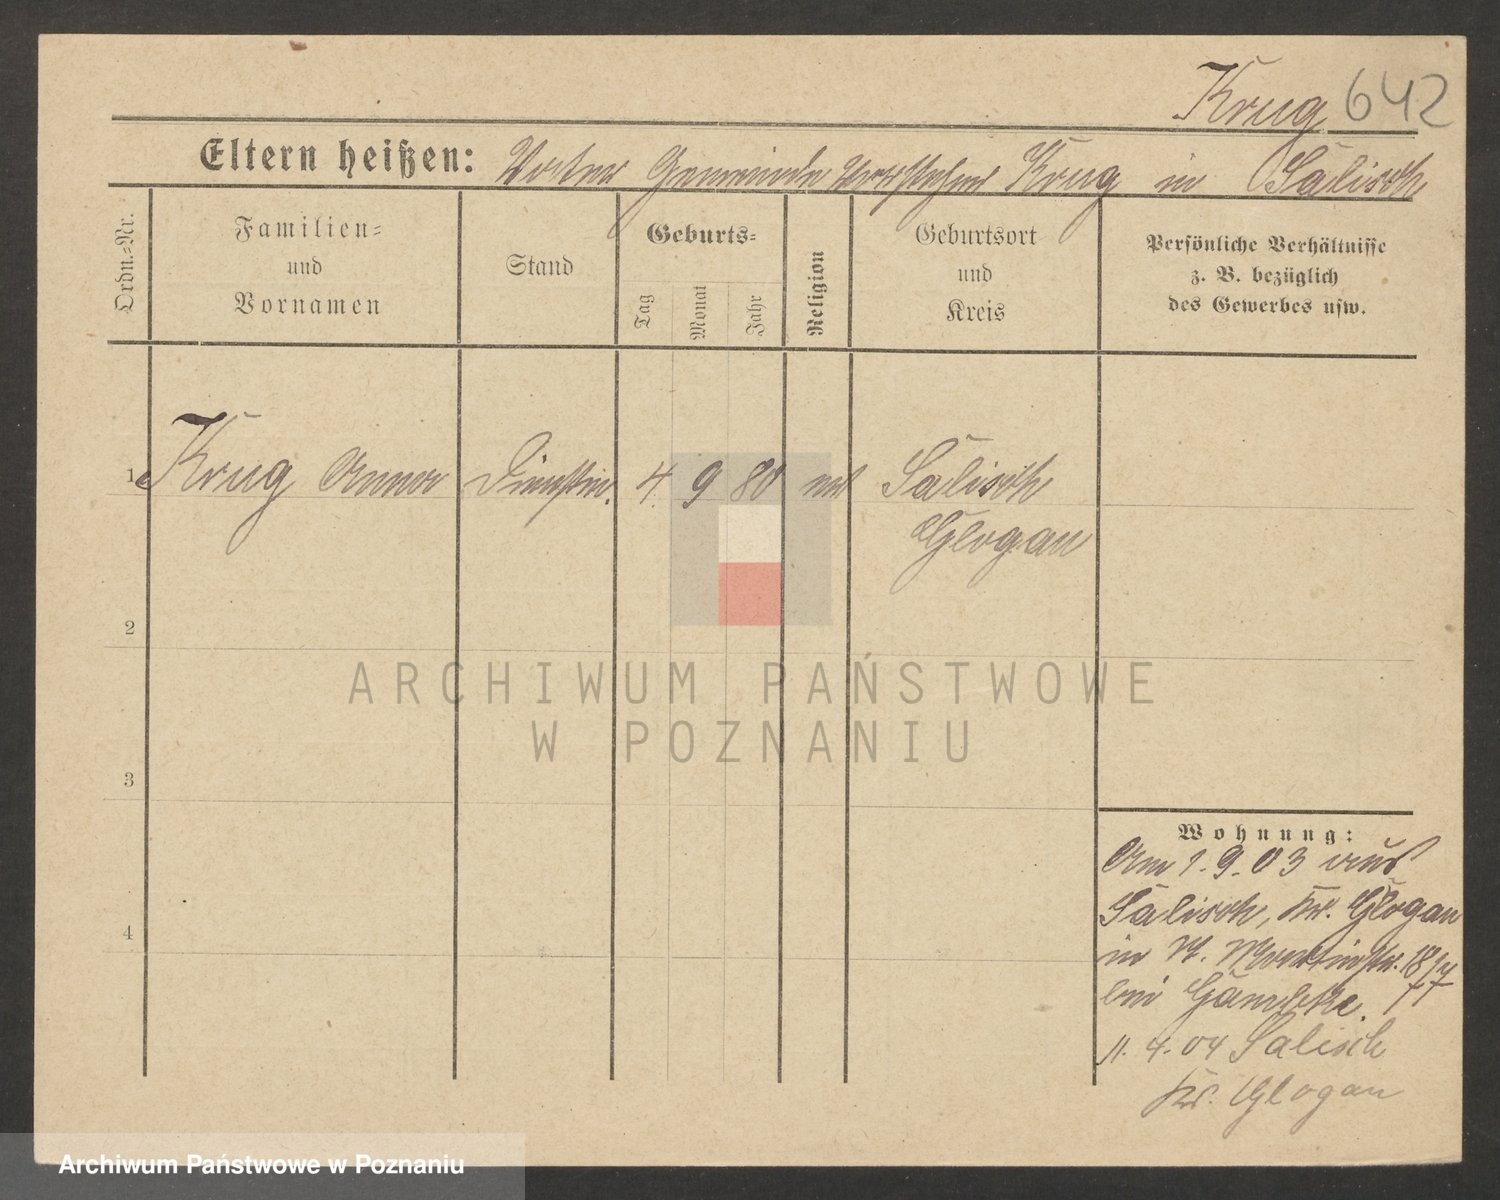 Krug 642
Eltern heißen: Vater Gemeinde Vorsteher Krug in Salisch
Ordn.-Nr.
Familien-
und
Vornamen
Stand
Geburts-
Tag
Monat
Jahr
Religion
Geburtsort
und
Kreis
Persönliche Verhältnisse
z. B. bezüglich
des Gewerbes usw.
1 Krug Anna Dienstm. 4. 9 80 ev Salisch
Glogau
2
3
4
Wohnung:
Am 1.9.03 aus
Salisch, Kr. Glogau
in St. Martinstr.
bei
11.4.04 Salisch
Kr. Glogau
ARCHIWUM PAŃSTWOWE
W POZNANIU
Archiwum Państwowe w Poznaniu